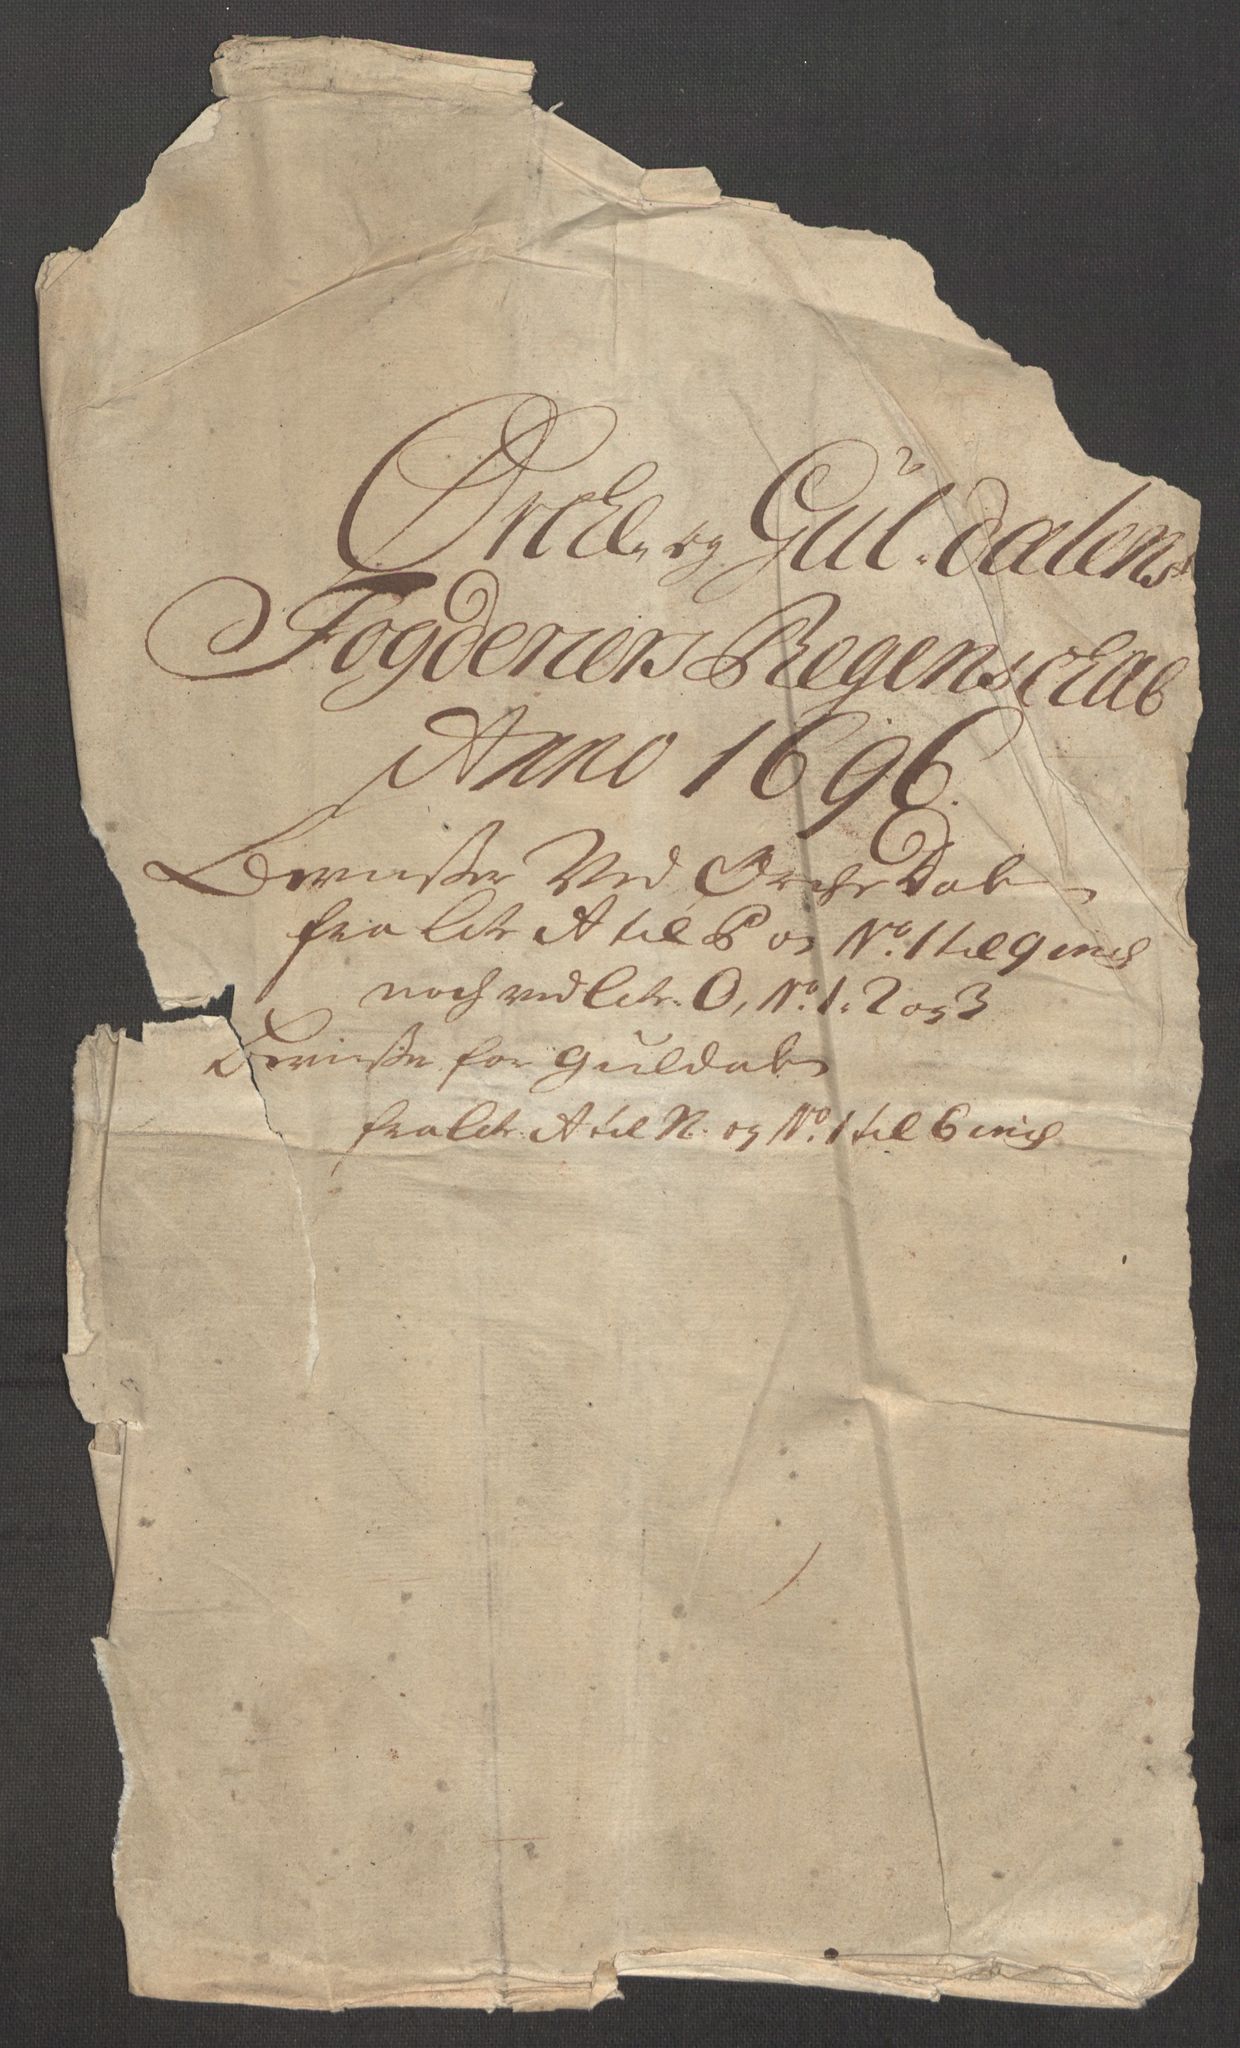 Orcke, og Gül-dalens
Fogderiers Regenschab
Anno 1696.
Beviisser Ved Orche Dalen
fra Litr A til P og No. 1 til 9 incl
noch ved Litr. O, No. 1. 2 og 3
Beviisser for Guldalen
fra Litr. A til N. og No. 1 til 6 incl